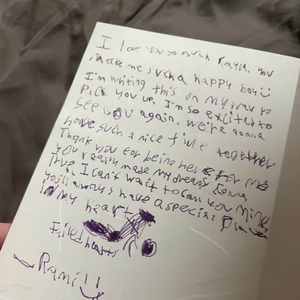 I love you so much Kayla. You
make me such a happy boy
I'm writing this on my way to
Pick you up. I'm so excited to
see you again. we're gonna
have such a nice time together
Thank you for being here for me
You really made my dreams
true. I can't wait to call you mine
you'll always have a special place
in my heart
Filled hearts
Rami!!